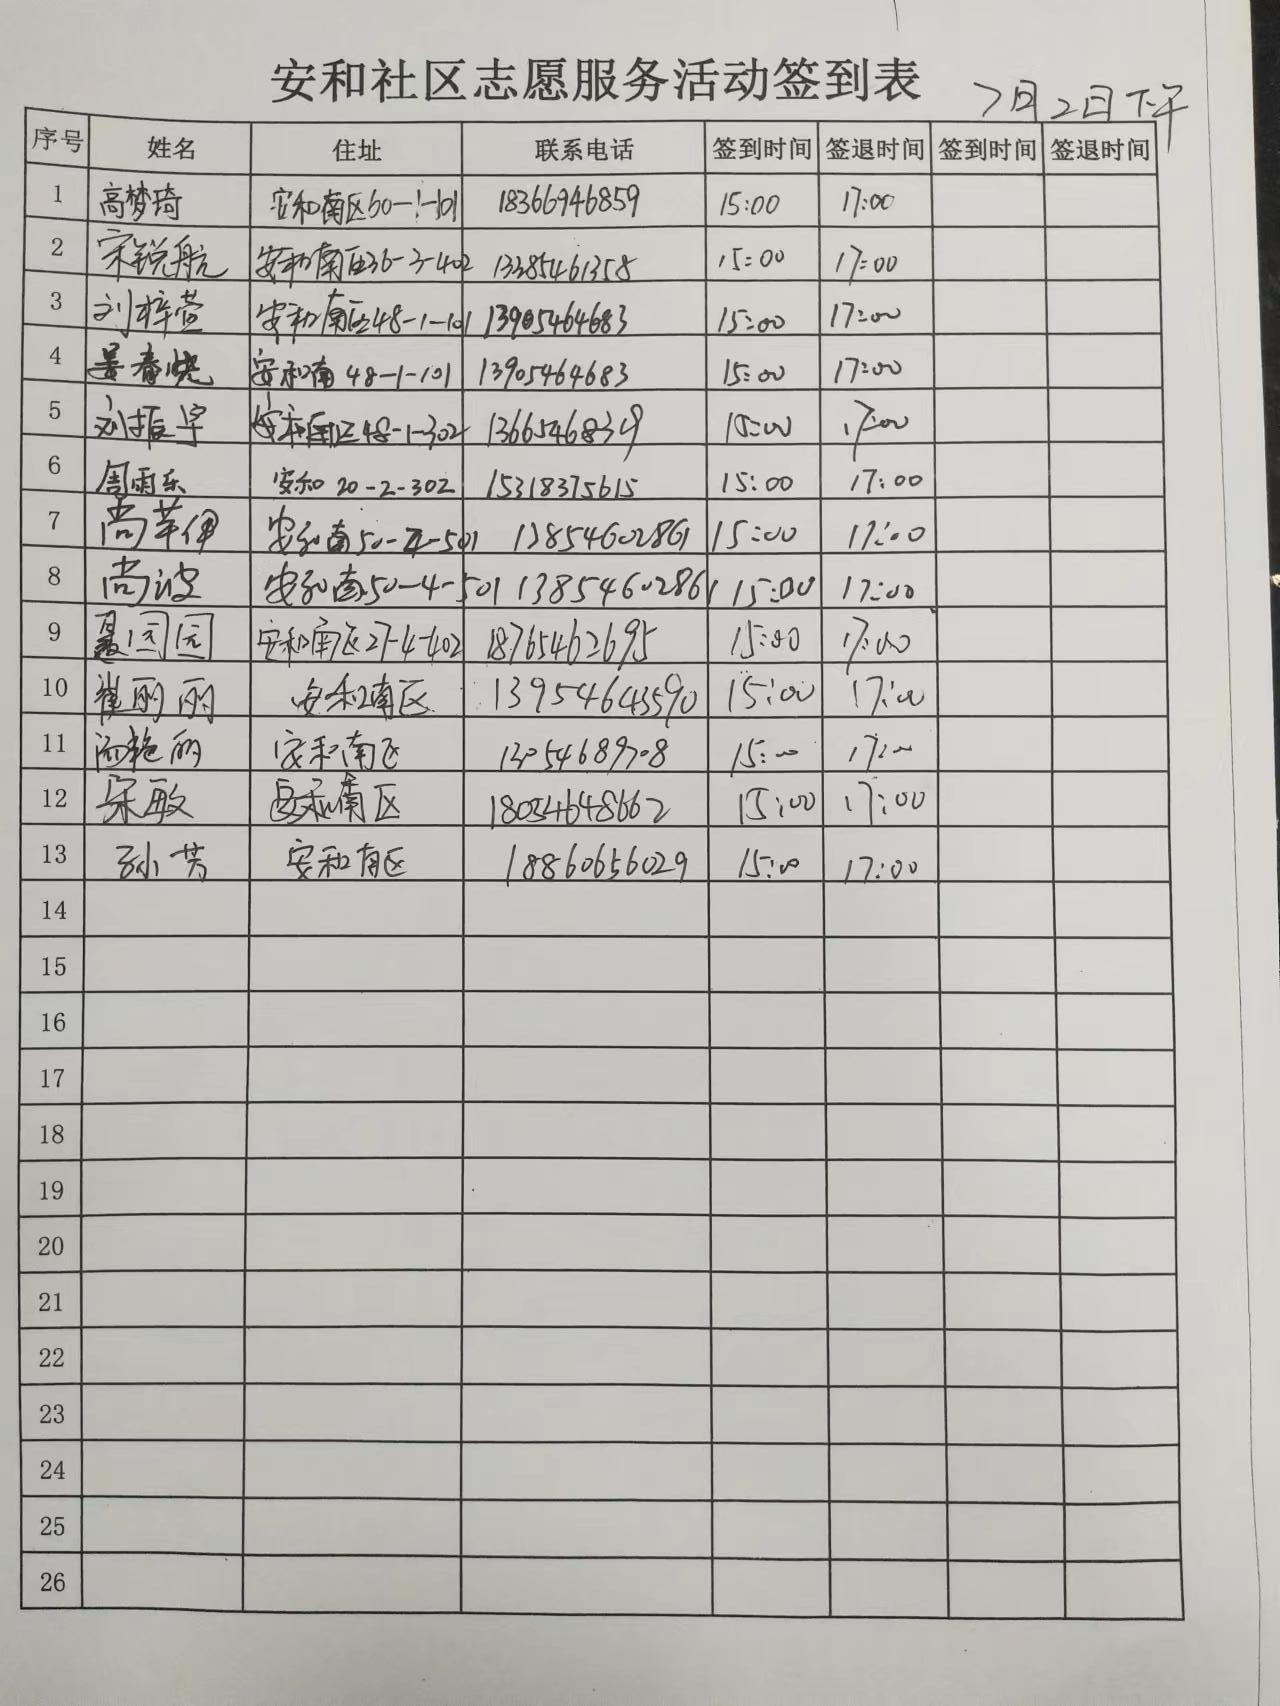 安和社区志愿服务活动签到表
7月2日下午
序号 姓名 住址 联系电话 签到时间 签退时间 签到时间 签退时间
1 高梦琦 安和南区60-1-101 18366946859 15:00 17:00
2 宋锐航 安和南区36-3-402 13385461358 15:00 17:00
3 刘梓萱 安和南区48-1-101 13905464683 15:00 17:00
4 姜春晓 安和南 48-1-101 13905464683 15:00 17:00
5 刘振宇 安和南区48-1-302 13665468349 15:00 17:00
6 周雨乐 安和 20-2-302 15318375615 15:00 17:00
7 尚苹伊 安和南50-4-501 13854602861 15:00 17:00
8 尚波 安和南50-4-501 13854602861 15:00 17:00
9 聂园园 安和南区27-4-402 18765462695 15:00 17:00
10 崔丽丽 安和南区 13954643590 15:00 17:00
11 安和南区 15:00 17:00
12 宋敏 安和南区 18054648662 15:00 17:00
13 孙芳 安和南区 18860656029 15:00 17:00
14
15
16
17
18
19
20
21
22
23
24
25
26